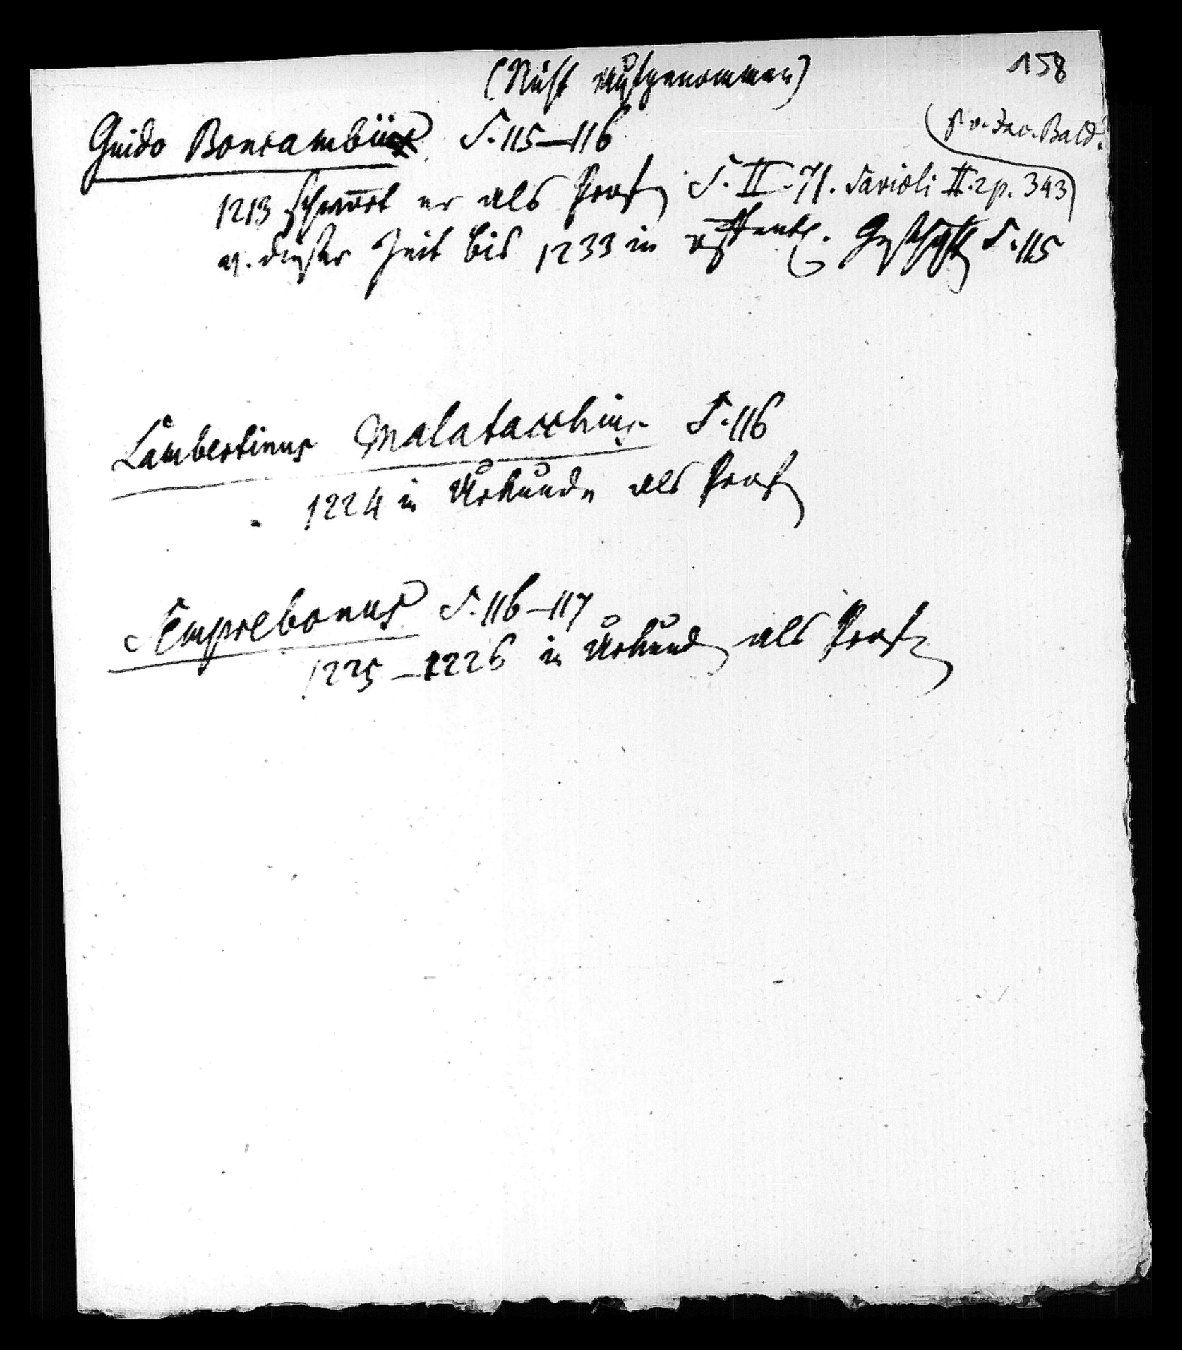 158
(Nicht aufgenommen)
Guido Boncambii S. 115–116
(s. v. Jac. Bald.
1213 schwört er als Prof S. II. 71. Savioli II. 2 p. 343)
v. dieser Zeit bis 1233 in öffentl. Geschäft S. 115
Lambertinus Malatacchius S. 116
1224 in Urkunde als Prof
Semprebonus S. 116–117
1225–1226 in Urkund als Prof